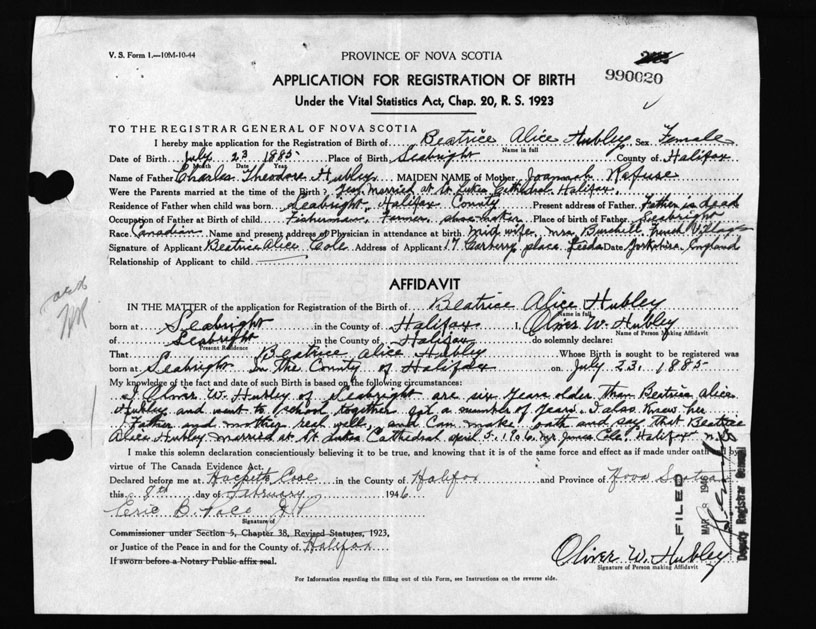 V. S. Form 1.—10M-10-44
PROVINCE OF NOVA SCOTIA
990020
APPLICATION FOR REGISTRATION OF BIRTH
Under the Vital Statistics Act, Chap. 20, R. S. 1923
TO THE REGISTRAR GENERAL OF NOVA SCOTIA
I hereby make application for the Registration of Birth of Beatrice Alice Hubley Sex Female
Name in full
Date of Birth July 23 1885 Place of Birth Seabright County of Halifax
Month Date Year
Name of Father Charles Theodore Hubley MAIDEN NAME of Mother Joannah
Were the Parents married at the time of the Birth? Yes Married at St Lukes Cathedral Halifax.
Residence of Father when child was born Seabright Halifax County Present address of Father Father is dead
Occupation of Father at Birth of child Fisherman Farmer shoemaker Place of birth of Father Seabright
Race Canadian Name and present address of Physician in attendance at birth Mid wife, Mrs Burchell French Village
Signature of Applicant Beatrice Alice Cole Address of Applicant 17 Carberry place Leeds Date Yorkshire, England
Relationship of Applicant to child
AFFIDAVIT
IN THE MATTER of the application for Registration of the Birth of Beatrice Alice Hubley
Name in full
born at Seabright in the County of Halifax I, Oliver W. Hubley
Name of Person Making Affidavit
of Seabright in the County of Halifax do solemnly declare:
Present Residence
That Beatrice Alice Hubley Whose Birth is sought to be registered was
born at Seabright In the County of Halifax on July 23, 1885
My knowledge of the fact and date of such Birth is based on the following circumstances:
I Oliver W. Hubley of Seabright are six years older than Beatrice Alice
Hubley and went to school together for a number of years. I also knew her
Father and mother real well, and can make oath and say that Beatrice
Alice Hubley married at St Lukes Cathedral April 5, 1906, Mr James Cole Halifax N.S.
I make this solemn declaration conscientiously believing it to be true, and knowing that it is of the same force and effect as if made under oath by
virtue of The Canada Evidence Act.
Declared before me at Hacketts Cove in the County of Halifax and Province of Nova Scotia
this 8th day of February 1946
Eric B. Pace J.P.
Signature of
Commissioner under Section 5, Chapter 38, Revised Statutes, 1923,
or Justice of the Peace in and for the County of Halifax
If sworn before a Notary Public affix seal.
Oliver W. Hubley
Signature of Person making Affidavit
For Information regarding the filling out of this Form, see Instructions on the reverse side.
FILED
MAR 9 1946
Deputy Registrar General